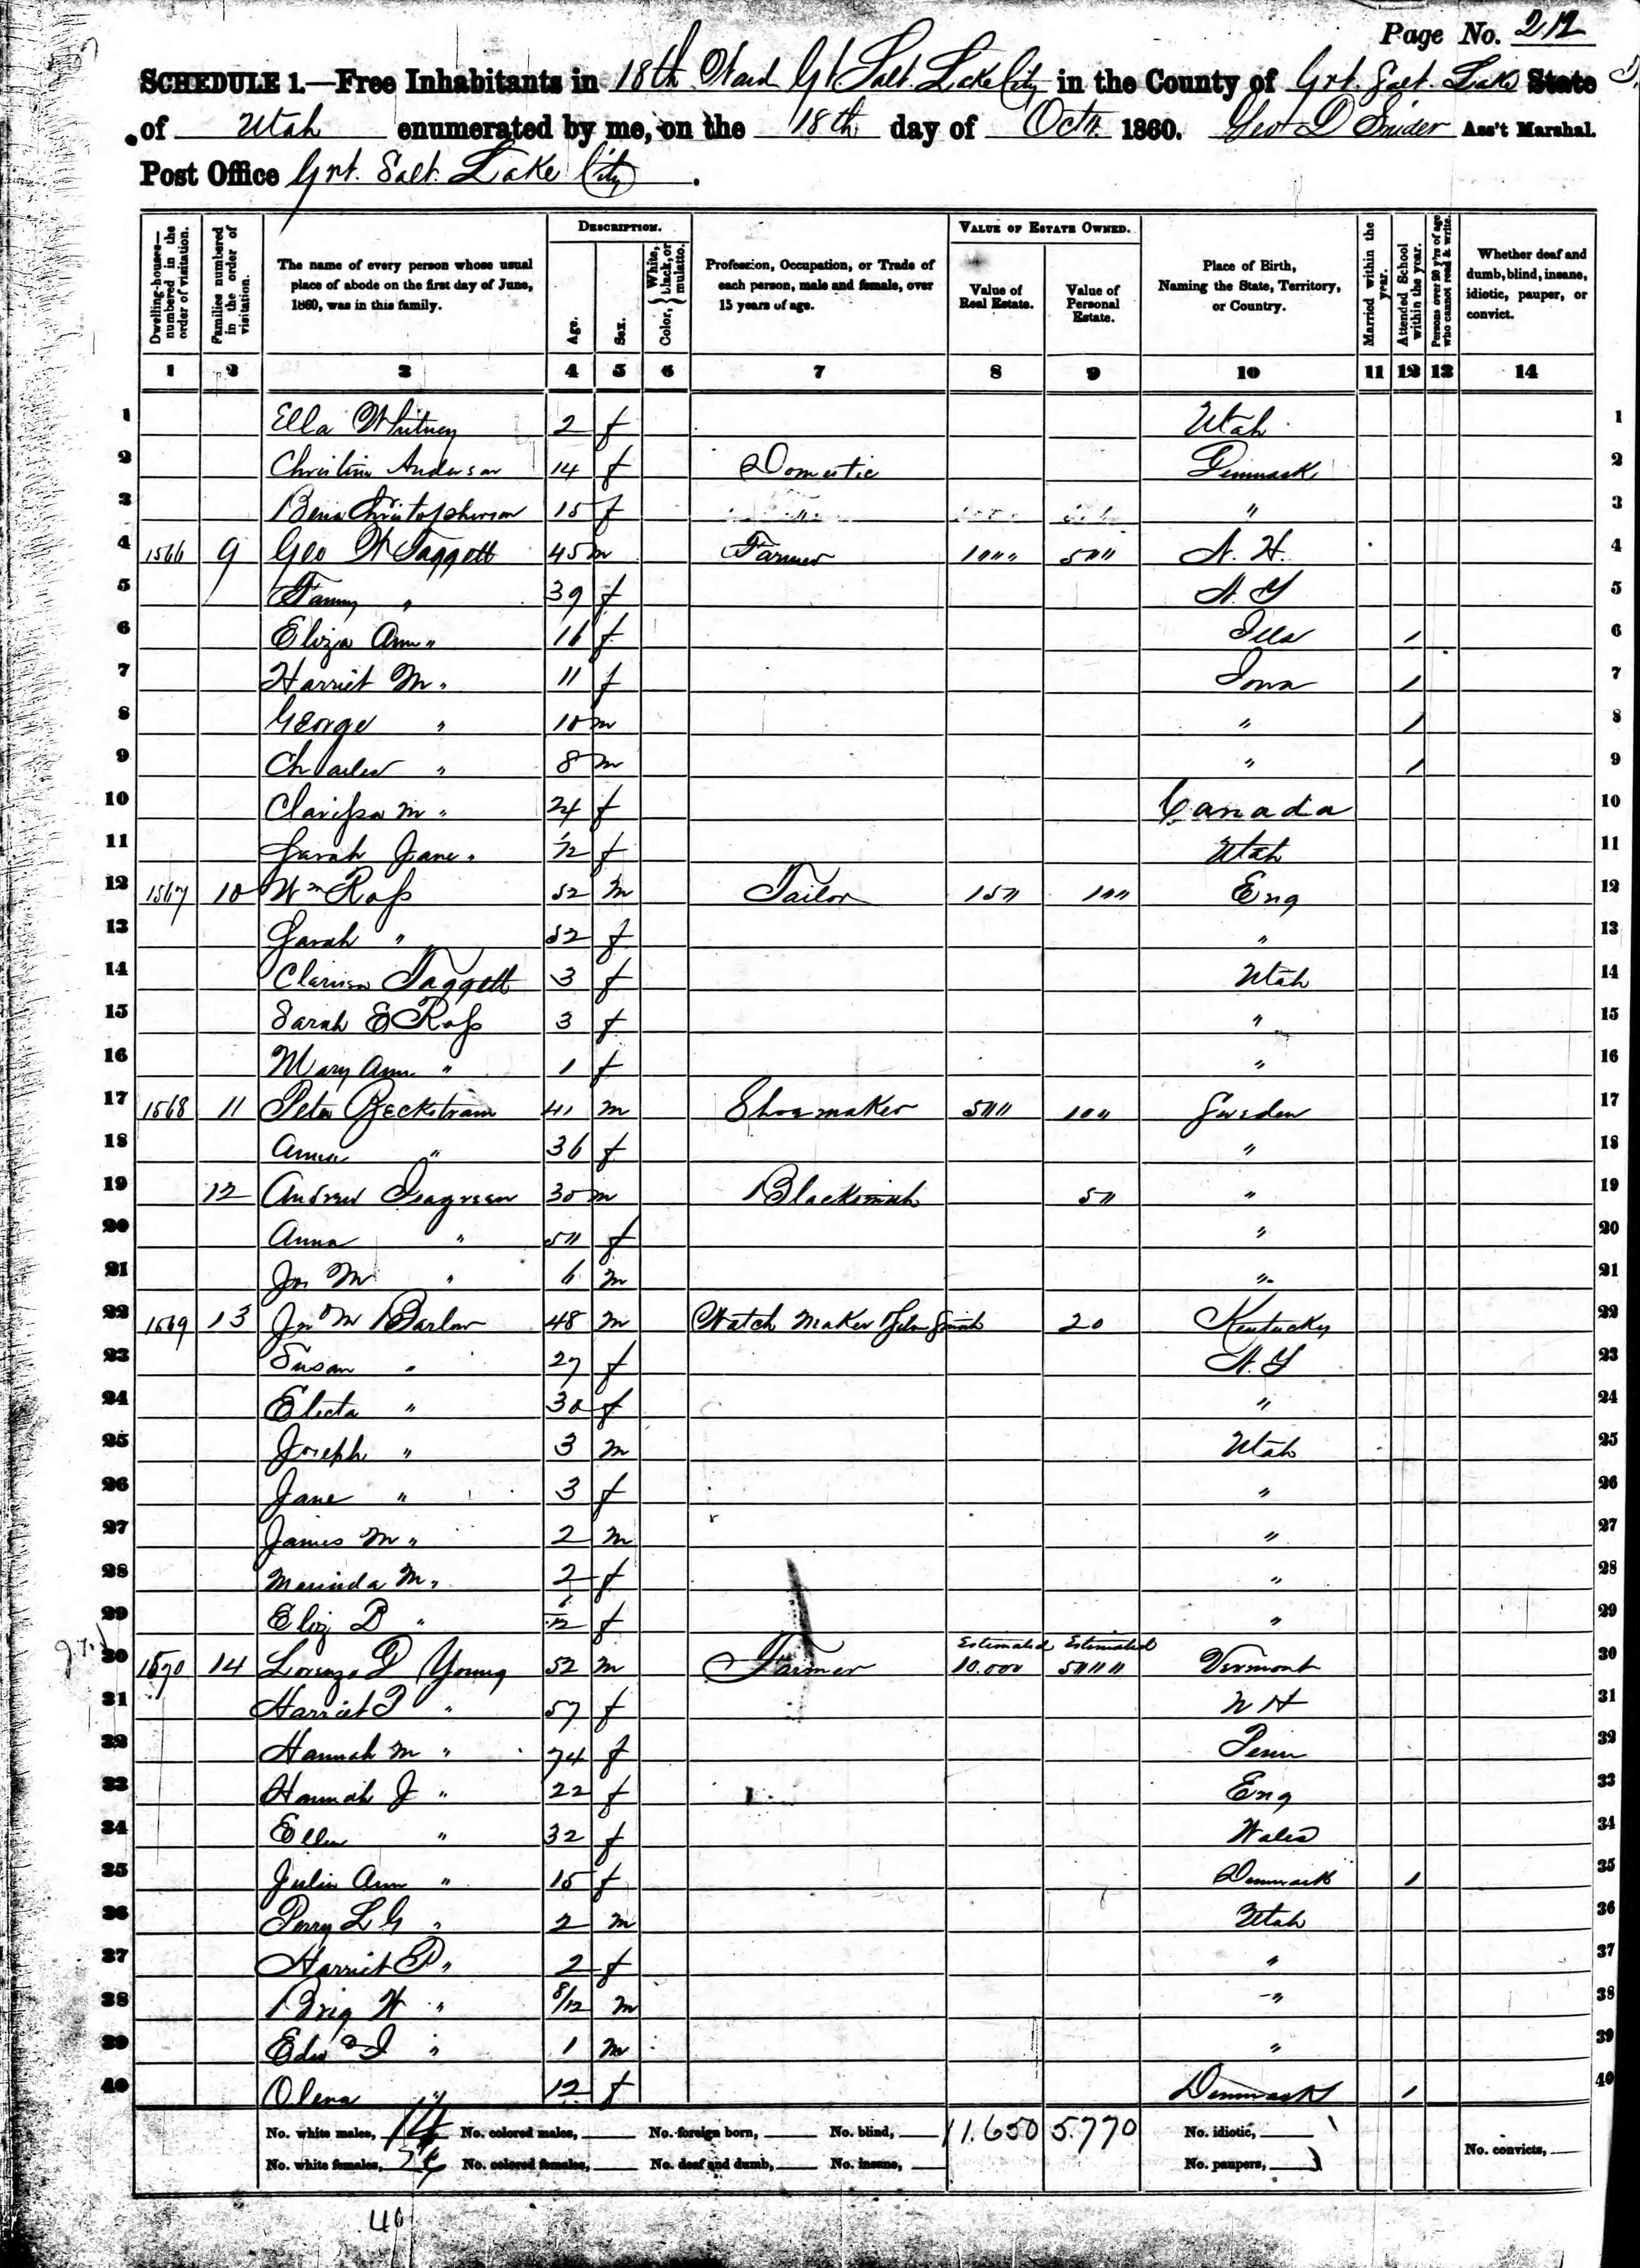 Page No. 212
SCHEDULE 1.—Free Inhabitants in 18th Ward Gt Salt Lake City in the County of Grt. Salt. Lake State
of Utah enumerated by me, on the 18th day of Octr. 1860. Geo D Snider Ass't Marshal.
Post Office Grt. Salt. Lake City.
Dwelling-houses—numbered in the order of visitation.
Families numbered in the order of visitation.
The name of every person whose usual place of abode on the first day of June, 1860, was in this family.
DESCRIPTION.
Age.
Sex.
Color, White, black, or mulatto.
Profession, Occupation, or Trade of each person, male and female, over 15 years of age.
VALUE OF ESTATE OWNED.
Value of Real Estate.
Value of Personal Estate.
Place of Birth, Naming the State, Territory, or Country.
Married within the year.
Attended School within the year.
Persons over 20 y'rs of age who cannot read & write.
Whether deaf and dumb, blind, insane, idiotic, pauper, or convict.
1 2 3 4 5 6 7 8 9 10 11 12 13 14
1 Ella Whitney 2 f Utah 1
2 Christine Anderson 14 f Domestic Denmark 2
3 Bena Christopherson 15 f " 3
4 1566 9 Geo W Taggett 45 m Farmer 1""" 5"" N. H. 4
5 Fanny " 39 f N. Y 5
6 Eliza Ann " 16 f Ills / 6
7 Harriet M. " 11 f Iowa / 7
8 George " 10 m " / 8
9 Charles " 8 m " / 9
10 Clarissa M " 24 f Canada 10
11 Sarah Jane " f Utah 11
12 1567 10 Wm Ross 52 m Tailor 15" 1"" Eng 12
13 Sarah " 52 f " 13
14 Clarissa Taggett 3 f Utah 14
15 Sarah E Ross 3 f " 15
16 Mary Ann " 1 f " 16
17 1568 11 Peter Beckstram 41 m Shoemaker 5"" 10" Sweden 17
18 Anna " 36 f " 18
19 12 Andrew 30 m Blacksmith 5" " 19
20 Anna " 5" f " 20
21 Jn M " 6 m " 21
22 1569 13 Jn M Barlow 48 m Watch Maker 20 Kentucky 22
23 Susan " 27 f N. Y 23
24 Electa " 30 f " 24
25 Joseph " 3 m Utah 25
26 Jane " 3 f " 26
27 James M " 2 m " 27
28 Marinda M " 2 f " 28
29 Eliz B " f " 29
Estimated Estimated
30 1570 14 Lorenzo D Young 52 m Farmer 10.000 5""" Vermont 30
31 Harriet P " 57 f N H 31
32 Hannah M " 74 f Penn 32
33 Hannah J " 22 f Eng 33
34 Ellen " 32 f Wales 34
35 Julia Ann " 15 f Denmark / 35
36 Perry L G " 2 m Utah 36
37 Harriet P " 2 f " 37
38 Brig W " 8/12 m " 38
39 Edw " 1 m " 39
40 Olena " 12 f Denmark / 40
No. white males, 14 No. colored males, No. foreign born, No. blind, 11.650 5.770 No. idiotic,
No. white females, 26 No. colored females, No. deaf and dumb, No. insane, No. paupers, No. convicts,
40